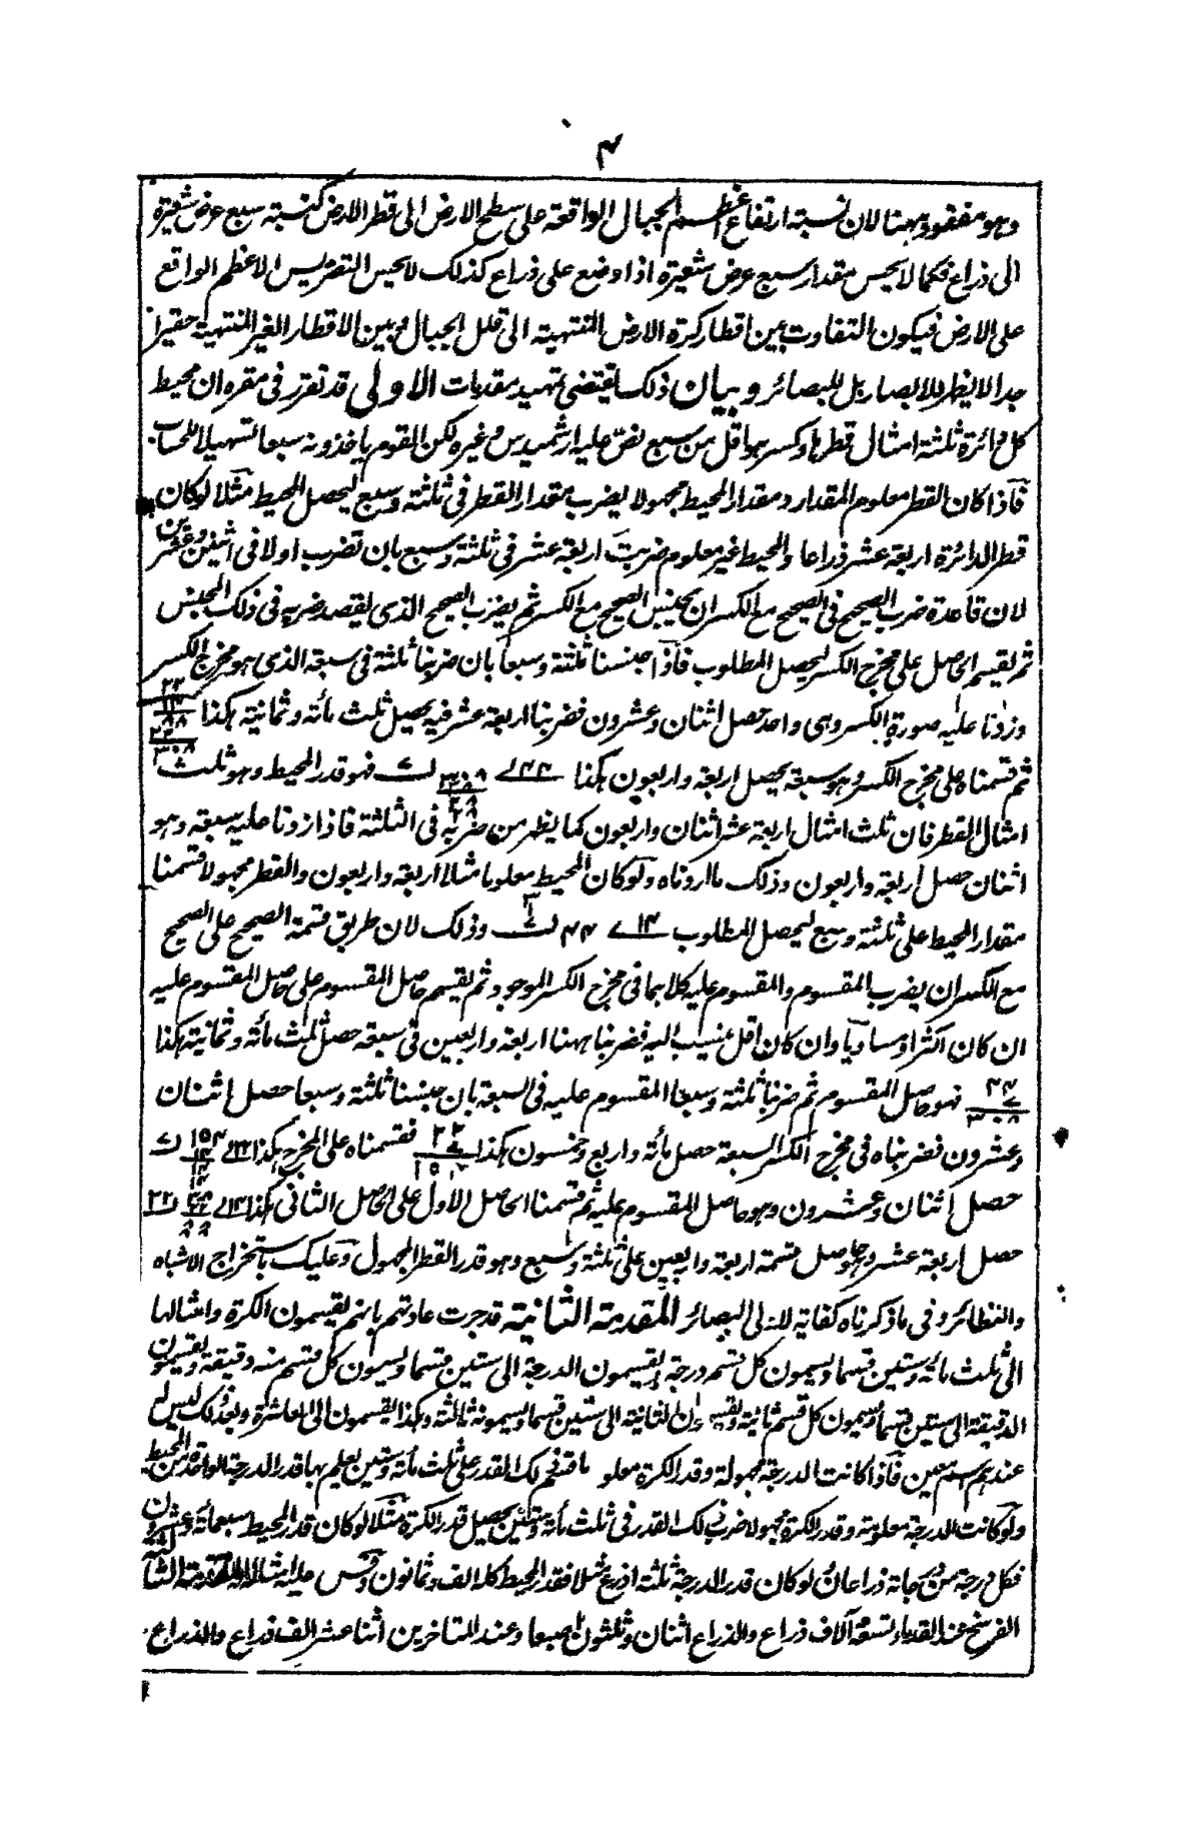 ٤
وهو مفقود ههنا لان نسبة ارتفاع اعظم الجبال الواقعة على سطح الارض الى قطر الارض كنسبة سبع عرض شعيرة
الى ذراع فكما لا يحس مقدار سبع عرض شعيرة اذا وضع على ذراع كذلك لا يحس التضريس الاعظم الواقع
على الارض فيكون التفاوت بين اقطار كرة الارض المنتهية الى قلل الجبال وبين الاقطار الغير المنتهية حقيرا
جدا لا يظهر للابصار بل للبصائر وبيان ذلك يقتضى تمهيد مقدمات الاولى قد تقرر فى مقره ان محيط
كل دائرة ثلثة امثال قطرها وكسر هو اقل من سبع نص عليه ارشميدس وغيره لكن القوم ياخذونه سبعا تسهيلا للحساب
فاذا كان القطر معلوم المقدار ومقدار المحيط مجهولا يضرب مقدار القطر فى ثلثة وسبع ليحصل المحيط مثلا لو كان
قطر الدائرة اربعة عشر ذراعا والمحيط غير معلوم ضربت اربعة عشر فى ثلثة وسبع بان تضرب اولا فى اثنين وعشرين
لان قاعدة ضرب الصحيح فى الصحيح مع الكسر ان يجنس الصحيح مع الكسر ثم يضرب الصحيح الذى يقصد ضربه فى ذلك المجنس
ثم يقسم الحاصل على مخرج الكسر ليحصل المطلوب فاذا جنسنا ثلثة وسبعا بان ضربنا ثلثة فى سبعة الذى هو مخرج الكسر
وزدنا عليه صورة الكسر وهى واحد حصل اثنان وعشرون فضربنا اربعة عشر فيه يحصل ثلث مأته وثمانية هكذا ٢٢ ١٤ ٨٨ ٢٢ ٣٠٨
ثم قسمناه على مخرج الكسر وهو سبعة يحصل اربعة واربعون هكذا ٤٤ ٣٠٨ ٢٨ فهو قدر المحيط وهو ثلث
امثال القطر فان ثلث امثال اربعة عشر اثنان واربعون كما يظهر من ضربه فى الثلثة فاذا زدنا عليه سبعه وهو
اثنان حصل اربعة واربعون وذلك ما اردناه ولو كان المحيط معلوما مثلا اربعة واربعون والقطر مجهولا قسمنا
مقدار المحيط على ثلثة وسبع ليحصل المطلوب ١٤ ٤٤ وذلك لان طريق قسمة الصحيح على الصحيح
مع الكسر ان يضرب المقسوم والمقسوم عليه كلاهما فى مخرج الكسر الموجود ثم يقسم حاصل المقسوم على حاصل المقسوم عليه
ان كان اكثر او مساويا وان كان اقل ينسب اليه فضربنا ههنا اربعة واربعين فى سبعة حصل ثلث مأته وثمانية هكذا
٤٤ ٧ ٣٠٨ فهو حاصل المقسوم ثم ضربنا ثلثة وسبعا المقسوم عليه فى السبعة بان جنسنا ثلثة وسبعا حصل اثنان
وعشرون فضربناه فى مخرج الكسر السبعة حصل مأته واربع وخمسون هكذا ٢٢ ٧ ١٥٤ فقسمناه على المخرج هكذا ٢٢ ١٥٤ ١٤ ١٤
حصل اثنان وعشرون وهو حاصل المقسوم عليه ثم قسمنا الحاصل الاول على الحاصل الثانى هكذا ١٤ ٣٠٨ ٢٢ ٨٨ ٢٢
حصل اربعة عشر وهو حاصل قسمة اربعة واربعين على ثلثة وسبع وهو قدر القطر المجهول وعليك باستخراج الاشباه
والنظائر وفى ما ذكرناه كفاية لاولى البصائر المقدمة الثانية قد جرت عادتهم بانهم يقسمون الكرة وامثالها
الى ثلث مأته وستين قسما ويسمون كل قسم درجة ويقسمون الدرجة الى ستين قسما ويسمون كل قسم منه دقيقة ويقسمون
الدقيقة الى ستين قسما ويسمون كل قسم ثانية ويقسمون الثانية الى ستين قسما ويسمونه ثالثة وهكذا يقسمون الى العاشرة وبعد ذلك ليس
عندهم اسم معين فاذا كانت الدرجة مجهولة وقدر الكرة معلوما قسم ذلك القدر على ثلث مأته وستين يعلم بها قدر الدرجة الواحدة من المحيط
ولو كانت الدرجة معلومة وقدر الكرة مجهولا ضرب ذلك القدر فى ثلث مأته وستين يحصل قدر الكرة مثلا لو كان قدر المحيط سبعمأته وعشرون
فكل درجة من درجاته ذراعان ولو كان قدر الدرجة ثلثة اذرع مثلا فقدر المحيط كله الف وثمانون وقس عليه امثاله المقدمة الثالثة
الفرسخ عند القدماء تسعة آلاف ذراع والذراع اثنان وثلثون اصبعا وعند المتاخرين اثنا عشر الف ذراع والذراع